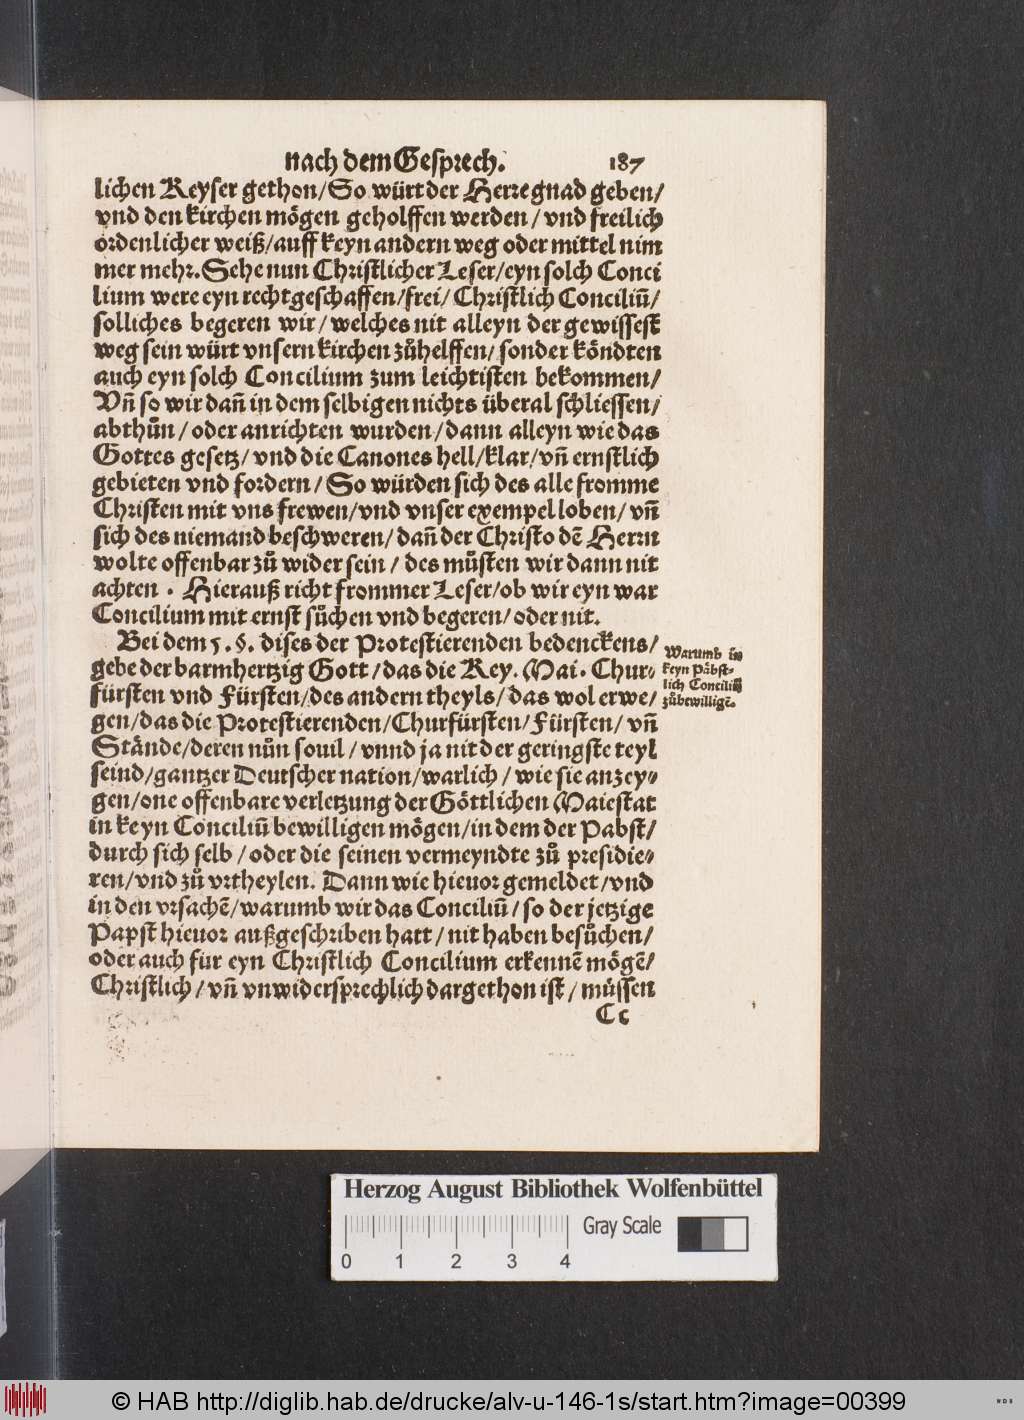 nach dem Gesprech. 187
lichen Keyser gethon/So würt der Herre gnad geben/
vnd den kirchen mögen geholffen werden/vnd freilich
ordenlicher weiß/auff keyn andern weg oder mittel nim
mer mehr. Sehe nun Christlicher Leser/eyn solch Conci
lium were eyn rechtgeschaffen/frei/Christlich Conciliū/
solliches begeren wir/welches nit alleyn der gewissest
weg sein würt vnsern kirchen zůhelffen/sonder köndten
auch eyn solch Concilium zum leichtisten bekommen/
Vñ so wir dañ in dem selbigen nichts überal schliessen/
abthůn/oder anrichten wurden/dann alleyn wie das
Gottes gesetz/vnd die Canones hell/klar/vñ ernstlich
gebieten vnd fordern/So würden sich des alle fromme
Christen mit vns frewen/vnd vnser exempel loben/vñ
sich des niemand beschweren/dañ der Christo dē Herrn
wolte offenbar zů wider sein/des můsten wir dann nit
achten. Hierauß richt frommer Leser/ob wir eyn war
Concilium mit ernst sůchen vnd begeren/oder nit.
Bei dem 5. §. dises der Protestierenden bedenckens/
gebe der barmhertzig Gott/das die Key. Mai. Chur-
fürsten vnd Fürsten/des andern theyls/das wol erwe/
gen/das die Protestierenden/Churfürsten/Fürsten/vñ
Stände/deren nůn souil/vnnd ja nit der geringste teyl
seind/gantzer Deutscher nation/warlich/wie sie anzey-
gen/one offenbare verletzung der Göttlichen Maiestat
in keyn Conciliū bewilligen mögen/in dem der Pabst/
durch sich selb/oder die seinen vermeyndte zů presidie-
ren/vnd zů vrtheylen. Dann wie hieuor gemeldet/vnd
in den vrsachē/warumb wir das Conciliū/so der jetzige
Papst hieuor außgeschriben hatt/nit haben besůchen/
oder auch für eyn Christlich Concilium erkennē mögē/
Christlich/vñ vnwidersprechlich dargethon ist/můssen
Cc
Warumb in
keyn Päbst-
lich Conciliū
zůbewilligē.
Herzog August Bibliothek Wolfenbüttel
Gray Scale
0 1 2 3 4
© HAB http://diglib.hab.de/drucke/alv-u-146-1s/start.htm?image=00399